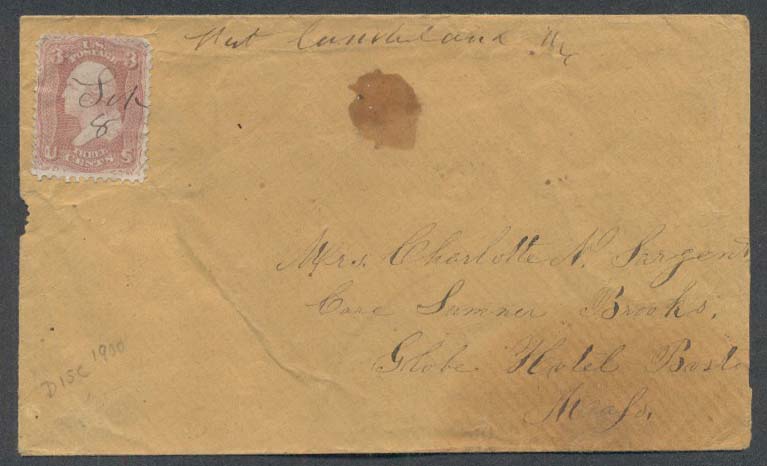 West Cumberland Me
3 U.S. 3
POSTAGE
Sep
8
U THREE S
CENTS
Mrs. Charlotte N. Sargent
Care Sumner Brooks.
Globe Hotel Boston
Mass.
DISC 1900